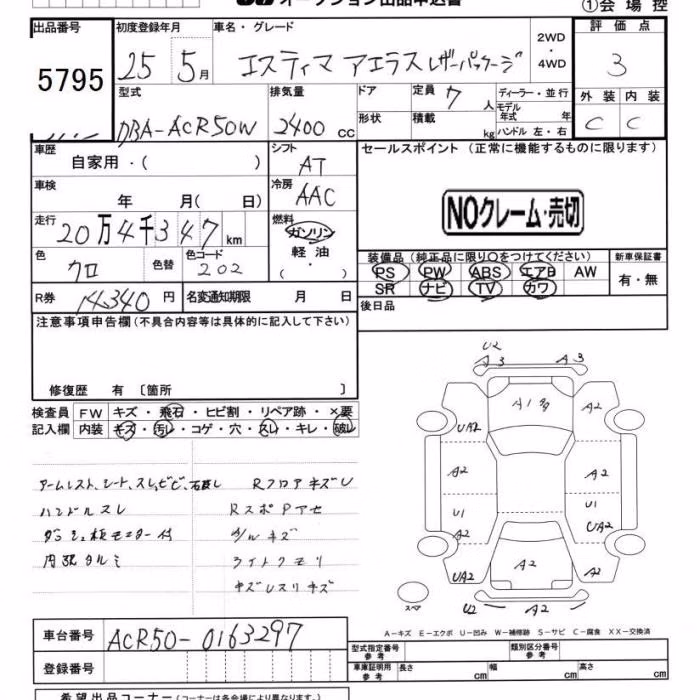 オークション出品申込書
①会場控
出品番号 初度登録年月 車名・グレード 2WD・4WD 評価点
5795 25 5月 エスティマ アエラス レザーパッケージ 3
型式 排気量 ドア 定員 7 人 ディーラー・並行 外装 内装
モデル年式 年
DBA-ACR50W 2400 cc 形状 積載 kg ハンドル 左・右 C C
車歴 シフト セールスポイント (正常に機能するものに限ります)
自家用・( ) AT
車検 冷房
年 月( 日) AAC
NOクレーム・売切
走行 燃料
20万4千347 km ガソリン
軽油
色 色替 色コード ・( )・
クロ 202
装備品 (純正品に限り○をつけてください) 新車保証書
PS PW ABS エアB AW 有・無
SR ナビ TV カワ
R券 14,340 円 名変通知期限 月 日
後日品
注意事項申告欄 (不具合内容等は具体的に記入して下さい)
修復歴 有 〔箇所 〕
検査員 FW キズ・飛石・ヒビ割・リペア跡・×要
記入欄 内装 キズ・汚レ・コゲ・穴・スレ・キレ・破レ
アームレスト、シート、スレ、 Rフロアキズレ
ハンドルスレ
付
内張タルミ ライトクモリ
U2
A3 A3
A1 A2
UA2
A2 A2
U1 U1
A2 UA2
UA2 A2 A2
スペア U2 A2
A−キズ E−エクボ U−凹み W−補修跡 S−サビ C−腐食 XX−交換済
車台番号 ACR50-0163297
型式指定番号 参考 類別区分番号 参考
登録番号 車庫証明用 参考 長さ cm 幅 cm 高さ cm
希望出品コーナー (コーナーは各会場により異なります。)